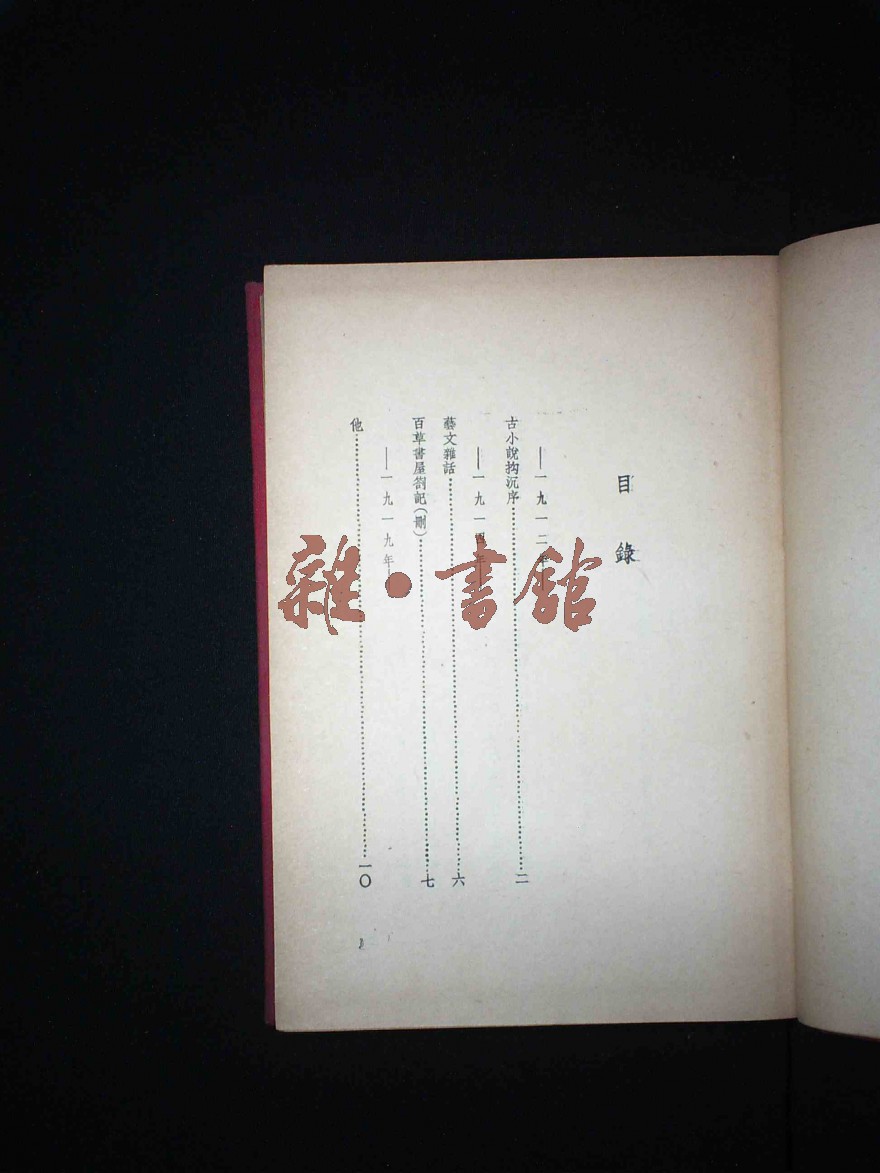 目錄
——一九一二年——
古小說拘沉序……二
——一九一四年——
藝文雜話……六
百草書屋劄記(刪)……七
——一九一九年——
他……一〇
雜·書館